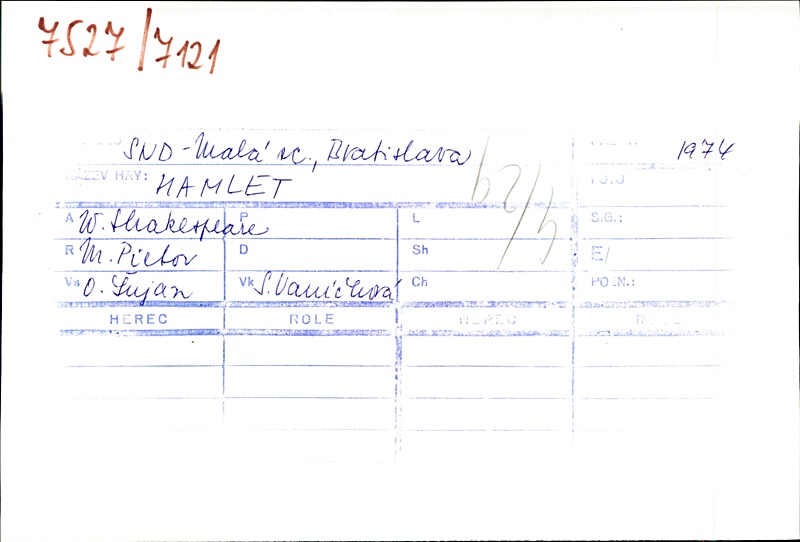 7527/7121
SND - Malá sc., Bratislava 1974
NÁZEV HRY: HAMLET
A W. Shakespeare P L S.G.:
R M. Pietor D Sh E/
Vs O. Šujan Vk S. Vaníčková Ch PO.N.:
HEREC ROLE HEREC ROLE